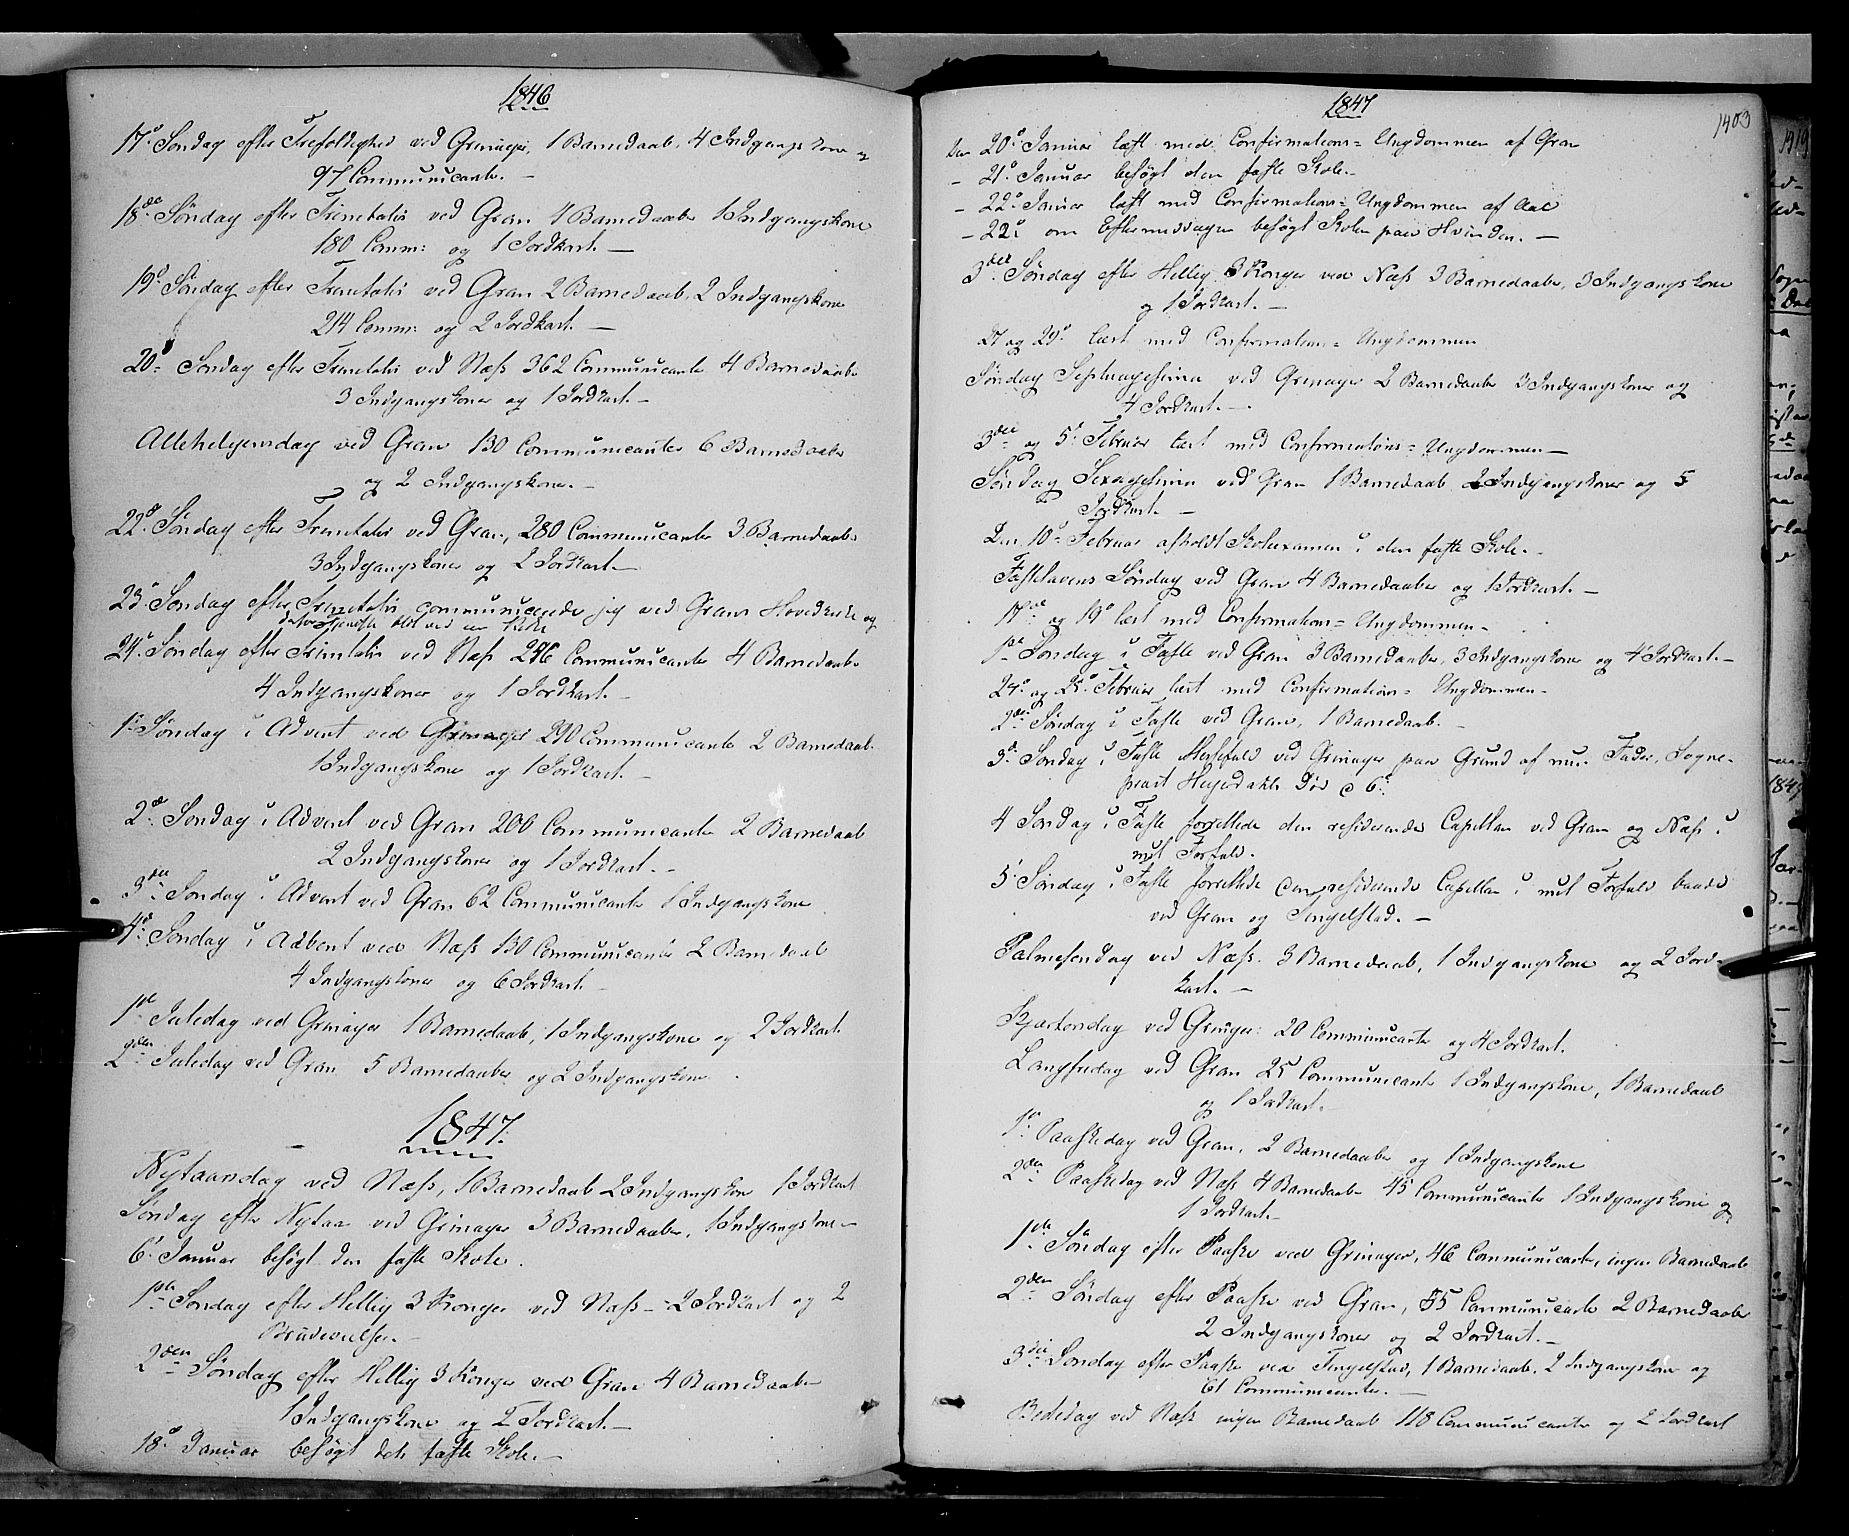 1846
17de Søndag efter Trefoldighed ved Grinager, 1 Barnedaab, 4 Indgangskoner og
97 Communicanter. –
18de Søndag efter Trinitatis ved Gran 4 Barnedaabe 1 Indgangskone
180 Comm: og 1 Jordkast. –
19de Søndag efter Trinitatis ved Gran 2 Barnedaab, 2 Indgangskone
214 Comm: og 2 Jordkast. –
20de Søndag efter Trinitatis ved Næss 362 Communicanter 4 Barnedaabe
3 Indgangskoner og 1 Jordkast. –
Allehelgensdag ved Gran 130 Communicanter 6 Barnedaabe
og 2 Indgangskone. –
22de Søndag efter Trinitatis ved Gran, 280 Communicanter 3 Barnedaabe
3 Indgangskoner og 2 Jordkast –
23de Søndag efter Trinitatis communicerede jeg ved Grans Hovedkirke og
blot ved een Kirke
24de Søndag efter Trinitatis ved Næss 246 Communicanter 4 Barnedaabe
4 Indgangskoner og 1 Jordkast. –
1ste Søndag i Advent ved Grinager 290 Communicanter 2 Barnedaab
1 Indgangskone og 1 Jordkast. –
2den Søndag i Advent ved Gran 200 Communicanter 2 Barnedaab
2 Indgangskoner og 1 Jordkast. –
3die Søndag i Advent ved Gran 62 Communicanter 1 Indgangskone
4de Søndag i Advent ved Næss 130 Communicanter 2 Barnedaab
4 Indgangskoner og 6 Jordkast –
1ste Juledag ved Grinager 1 Barnedaab, 1 Indgangskone og 2 Jordkast
2den Juledag ved Gran 5 Barnedaaber og 2 Indgangskone
1847.
Nytaarsdag ved Næss, 1 Barnedaab 2 Indgangskone 1 Jordkast
Søndag efter Nytaar ved Grinager 3 Barnedaaber, 1 Indgangskone –
6te Januar besøgt den faste Skole.
1ste Søndag efter Hellig 3 Konger ved Næss – 2 Jordkast og 2
Brudevielser. –
2den Søndag efter Hellig 3 Konger ved Gran 4 Barnedaabe
1 Indgangskone og 2 Jordkast. –
18de Januar besøgt den faste Skole. –
1847
1403
Den 20de Januar læst med Confirmations=Ungdommen af Gran
– 21de Januar besøgt den faste Skole –
– 22de Januar læst med Confirmations=Ungdommen af Aal
– 22de om Eftermiddagen besøgt Skolen paa Hvinden. –
3die Søndag efter Hellig 3 Konger ved Næss 3 Barnedaabe, 3 Indgangskone
og 1 Jordkast. –
27 og 29de læst med Confirmations=Ungdommen
Søndag Septuagesima ved Grinager 2 Barnedaabe 3 Indgangskoner og
4 Jordkast. –
3die og 5te Februar læst med Confirmations=Ungdommen –
Søndag Sexagesima ved Gran 1 Barnedaab 2 Indgangskoner og 5
Jordkast. –
Den 10de Februar afholdt Skoleexamen i den faste Skole. –
Fastelavens Søndag ved Gran 4 Barnedaaber og 1 Jordkast. –
17de og 19de læst med Confirmations=Ungdommen –
1ste Søndag i Faste ved Gran 3 Barnedaaber, 3 Indgangskoner og 4 Jordkast. –
24de og 25de Februar læst med Confirmations=Ungdommen –
2den Søndag i Faste ved Gran, 1 Barnedaab. –
3die Søndag i Faste Messefald ved Grinager paa Grund af min Fader, Sogne-
præst Død 6te
4 Søndag i Faste forrettede den residerende Capellan ved Gran og Næss i
mit Forfald.
5te Søndag i Faste forrettede den residerende Capellan i mit Forfald baade
ved Gran og Tingelstad. –
Palmesøndag ved Næss. 3 Barnedaab, 1 Indgangskone og 2 Jord-
kast. –
Skjærtorsdag ved Grinager: 20 Communicanter og 4 Jordkast.
Langfredag ved Gran 25 Communicanter 1 Indgangskone, 1 Barnedaab
og 1 Jordkast. –
1ste Paaskedag ved Gran, 2 Barnedaaber og 1 Indgangskone
2den Paaskedag ved Næss 4 Barnedaabe 45 Communicanter 1 Indgangskone og
1 Jordkast. –
1ste Søndag efter Paaske ved Grinager, 46 Communicanter, ingen Barnedaab
2den Søndag efter Paaske ved Gran, 55 Communicanter 2 Barnedaabe
2 Indgangskoner og 2 Jordkast. –
3die Søndag efter Paaske ved Tingelstad, 1 Barnedaab, 2 Indgangskone og
61 Communicanter. –
Bededag ved Næss ingen Barnedaab 118 Communicanter og 2 Jordkast